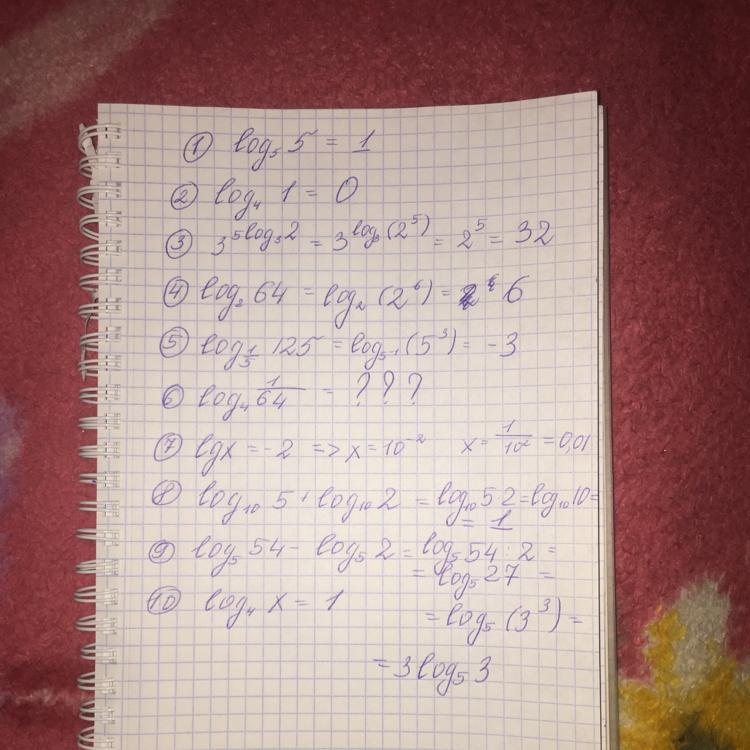 ① log₅ 5 = 1
② log₄ 1 = 0
③ 3^(5log₃2) = 3^(log₃(2⁵)) = 2⁵ = 32
④ log₂ 64 = log₂ (2⁶) = 6
⑤ log_(1/5) 125 = log₅₋₁ (5³) = -3
⑥ log₄ 1/64 = ???
⑦ lgx = -2 => x = 10⁻² x = 1/10² = 0,01
⑧ log₁₀ 5 + log₁₀ 2 = log₁₀ 5·2 = log₁₀ 10 =
= 1
⑨ log₅ 54 - log₅ 2 = log₅ 54 : 2 =
= log₅ 27 =
⑩ log₄ x = 1
= log₅ (3³) =
= 3 log₅ 3